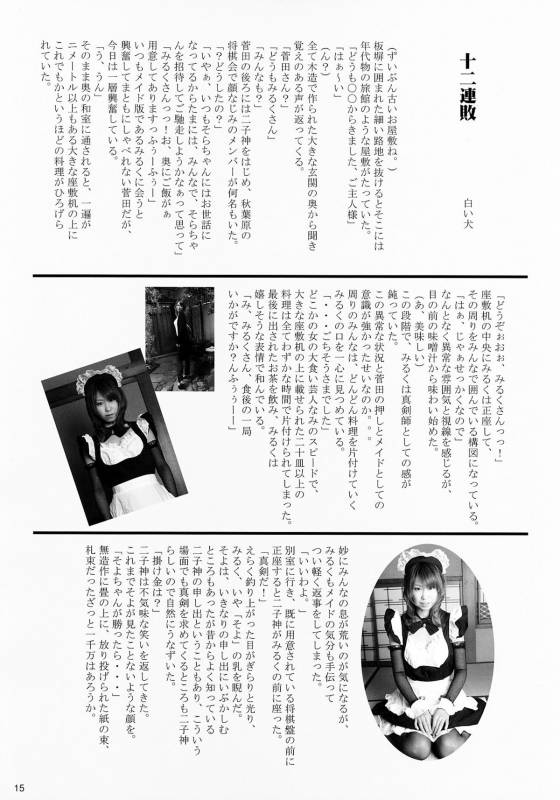 十二連敗
白い犬
（ずいぶん古いお屋敷ね。）
板塀に囲まれた細い路地を抜けるとそこには
年代物の旅館のような屋敷がたっていた。
「どうも〇〇からきました、ご主人様」
「はぁ〜い」
（ん？）
全て木造で作られた大きな玄関の奥から聞き
覚えのある声が返ってくる。
「菅田さん？」
「どうもみるくさん」
「みんなも？」
菅田の後ろには二子神をはじめ、秋葉原の
将棋会で顔なじみのメンバーが何名もいた。
「？どうしたの？」
「いやぁ、いつもそらちゃんにはお世話に
なってるからたまには、みんなで、そらちゃ
んを招待してご馳走しようかなぁって思って」
「みるくさんっっ！お、奥にご飯がぁ
用意してありますっふぅーふぅー」
いつもメイド版であるみるくに会うと
興奮してまともにしゃべれない菅田だが、
今日は一層興奮している。
「う、うん」
そのまま奥の和室に通されると、一遍が
二メートル以上もある大きな座敷机の上に
これでもかというほどの料理がひろげら
れていた。
「どうぞぉぉお、みるくさんっっ！」
座敷机の中央にみるくは正座して、
その周りをみんなで囲んでいる構図になっている。
「はぁ、じゃぁせっかくなので」
なんとなく異常な雰囲気と視線を感じるが、
目の前の味噌汁から味わい始めた。
（あ、美味しい）
この段階で、みるくは真剣師としての感が
鈍っていた。
この異常な状況と菅田の押しとメイドとしての
意識が強かったせいなのか。。。
周りのみんなは、どんどん料理を片付けていく
みるくの口を一心に見つめている。
「・・・ごちそうさまでした」
どこかの女の大食い芸人なみのスピードで、
大きな座敷机の上に載せられた二十皿以上の
料理は全てわずかな時間で片付けられてしまった。
最後に出されたお茶を飲み、みるくは
嬉しそうな表情で和んでいる。
「み、みるくさん、食後の一局
いかがですか？んふぅぅーー」
妙にみんなの息が荒いのが気になるが、
みるくもメイドの気分も手伝って
つい軽く返事をしてしまった。
「いいわよ。」
別室に行き、既に用意されている将棋盤の前に
正座すると二子神がみるくの前に座った。
「真剣だ！」
えらく釣り上がった目がぎらりと光り、
みるく、いや「そよ」の乳を睨んだ。
そよは、いきなりの申し出にいぶかしむ
ところもあったが昔からよく知っている
二子神の申し出ということもあり、こういう
場面でも真剣を求めてくるところも二子神
らしいので自然にうなずいた。
「掛け金は？」
二子神は不気味な笑いを返してきた。
これまでそよが見たことないような顔を。
「そよちゃんが勝ったら・・・」
無造作に畳の上に、放り投げられた紙の束、
札束だったざっと一千万はあろうか。
15